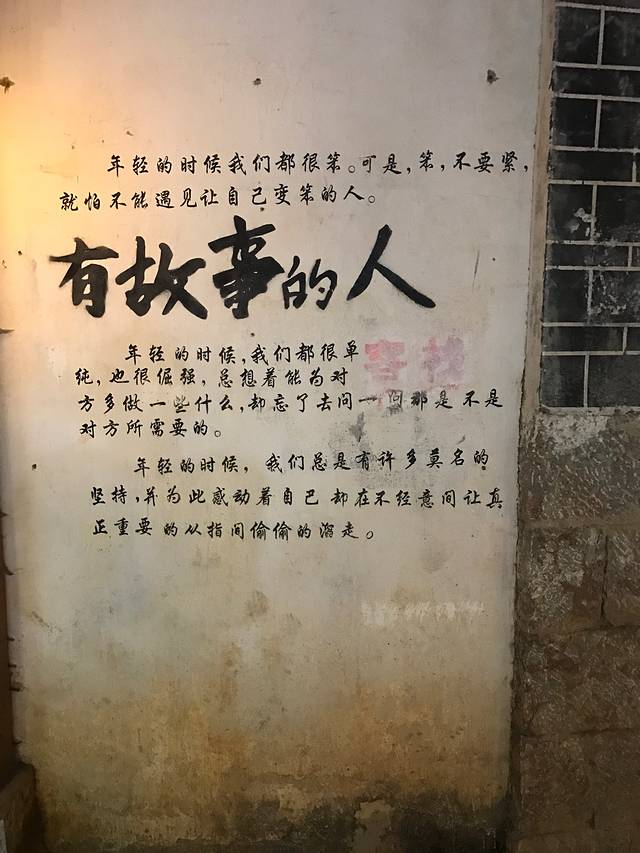 年轻的时候我们都很笨。可是,笨,不要紧,
就怕不能遇见让自己变笨的人。
有故事的人
年轻的时候,我们都很单
纯,也很倔强,总想着能为对
方多做一些什么,却忘了去问一问那是不是
对方所需要的。
客栈
年轻的时候,我们总是有许多莫名的
坚持,并为此感动着自己却在不经意间让真
正重要的从指间偷偷的溜走。